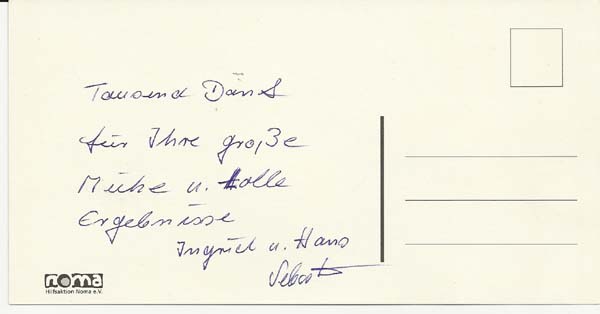 Tausend Dank
für Ihre große
Mühe u. tolle
Ergebnisse
Ingrid u. Hans
noma
Hilfsaktion Noma e.V.